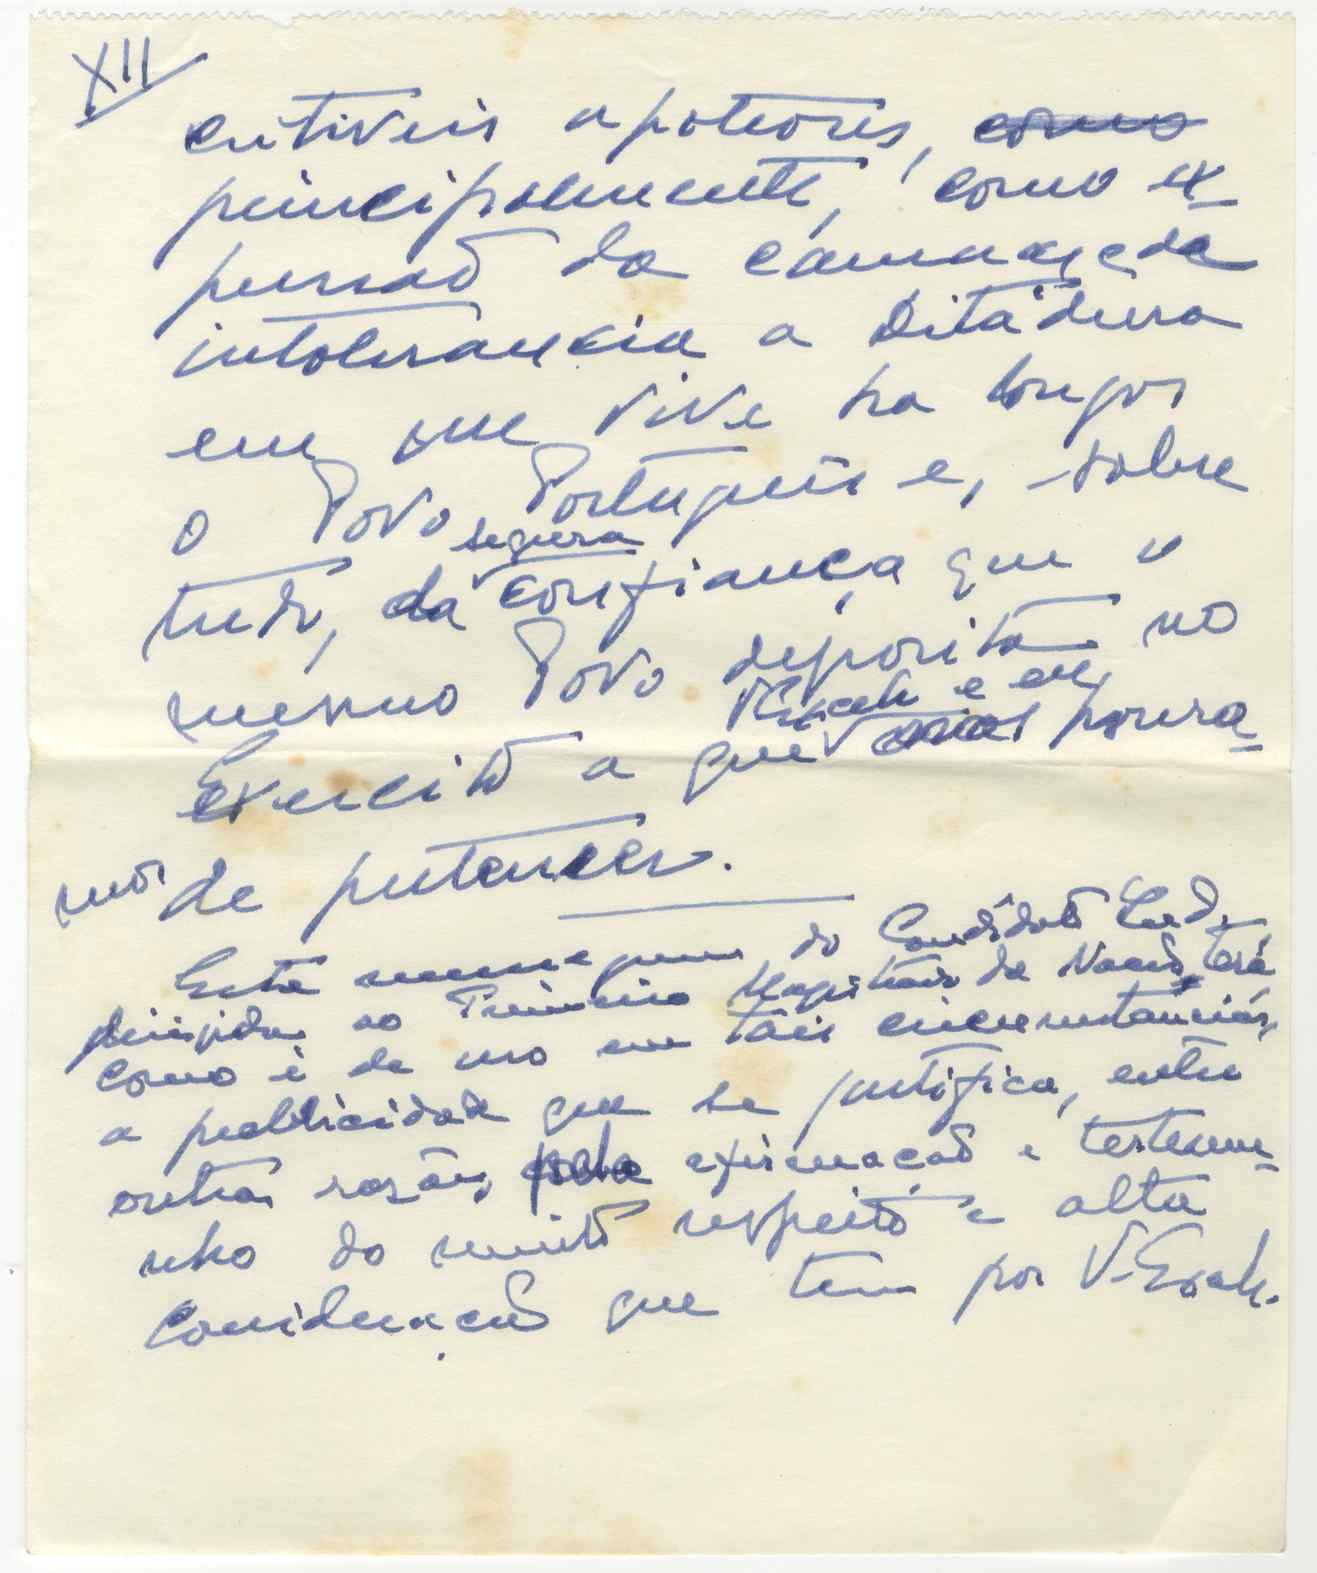 XII
critiveis apoteoses, como
principalmente, como ex-
pressaõ da cansaçada
intolerancia a Ditadura
em que vive ha longos
o Povo Português e, sobre
tudo, da segura confiança que o
mesmo Povo deposita no
Exercito a que V. Excelª e eu, honra-
mos de pertencer.
Esta mensagem do Candidato
dirigida ao Primeiro Magistrado da Nacaõ, terá
como é de uso em tais circunstancias,
a publicidade que se justifica, entre
outras razões, pela afirmaçaõ e testemu-
nho do muito respeito e alta
consideraçaõ que tem por V. Excelª.